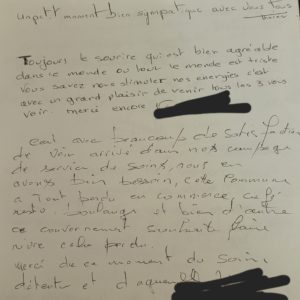 un petit moment bien sympatique avec vous tous
Toujours le sourire qui est bien agréable
dans le monde ou tout le monde est triste
vous savez nous stimuler nos energies c'est
avec un grand plaisir de venir tous les 3 vous
voir. merci encore
C'est avec beaucoup de satisfaction
de voir arrivé dans nos campagne
de service de soins, nous en
avons bien besoin, cette commune
a tout perdu en commerce, café
resto boulanger et bien d'autre
ce gouvernement souhaite faire
vivre
merci de ce moment du soin,
détente et